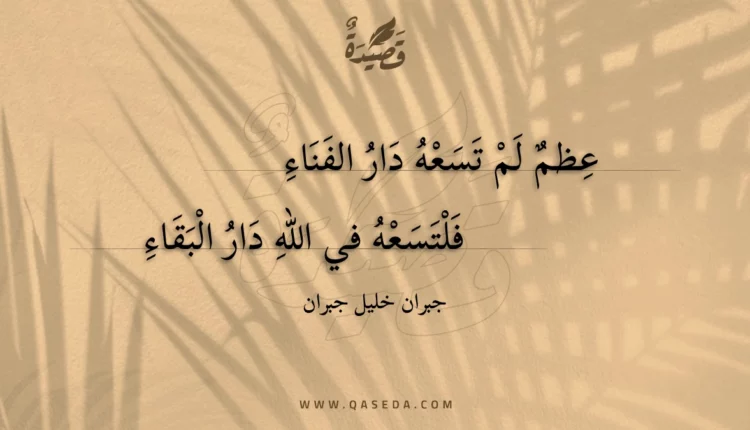 قَصِيْدَةٌ
عِظمٌ لَمْ تَسَعْهُ دَارُ الفَنَاءِ
فَلْتَسَعْهُ في اللهِ دَارُ الْبَقَاءِ
جبران خليل جبران
WWW.QASEDA.COM